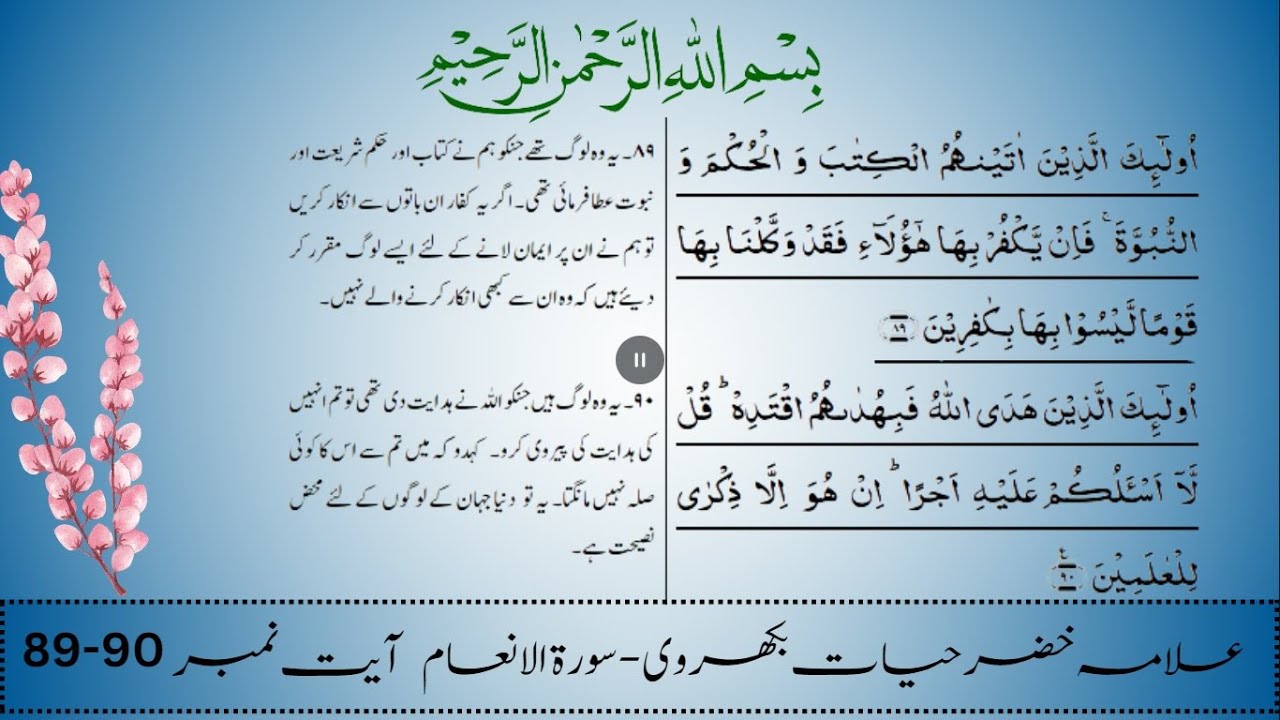 بِسْمِ اللهِ الرَّحْمٰنِ الرَّحِيْمِ
اُولٰٓئِكَ الَّذِيْنَ اٰتَيْنٰهُمُ الْكِتٰبَ وَ الْحُكْمَ وَ
النُّبُوَّةَ ۚ فَاِنْ يَّكْفُرْ بِهَا هٰٓؤُلَآءِ فَقَدْ وَكَّلْنَا بِهَا
قَوْمًا لَّيْسُوْا بِهَا بِكٰفِرِيْنَ ۸۹
اُولٰٓئِكَ الَّذِيْنَ هَدَى اللهُ فَبِهُدٰىهُمُ اقْتَدِهْ ؕ قُلْ
لَّاۤ اَسْـَٔلُكُمْ عَلَيْهِ اَجْرًا ؕ اِنْ هُوَ اِلَّا ذِكْرٰى
لِلْعٰلَمِيْنَ ۹۰
۸۹۔ یہ وہ لوگ تھے جنکو ہم نے کتاب اور حکم شریعت اور
نبوت عطا فرمائی تھی۔ اگر یہ کفار ان باتوں سے انکار کریں
تو ہم نے ان پر ایمان لانے کے لئے ایسے لوگ مقرر کر
دیئے ہیں کہ وہ ان سے کبھی انکار کرنے والے نہیں۔
۹۰۔ یہ وہ لوگ ہیں جنکو اللہ نے ہدایت دی تھی تو تم انہیں
کی ہدایت کی پیروی کرو۔ کہدو کہ میں تم سے اس کا کوئی
صلہ نہیں مانگتا۔ یہ تو دنیا جہان کے لوگوں کے لئے محض
نصیحت ہے۔
علامہ خضر حیات بکھروی-سورۃ الانعام آیت نمبر 89-90